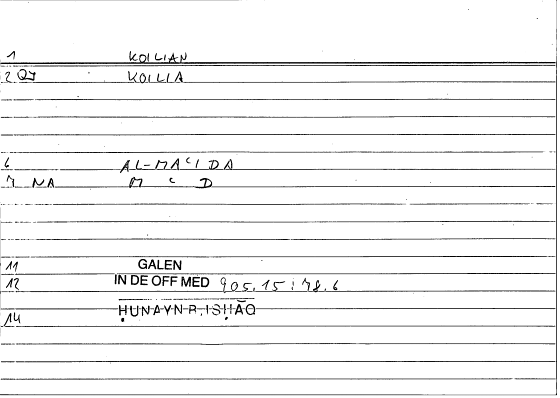 1 KOILIAN
2 QJ KOILIA
6 AL-MAʿIDA
7 NA M ʿ D
11 GALEN
12 IN DE OFF MED 905.15 : 78.6
14 ḤUNAYN B. ISḤĀQ